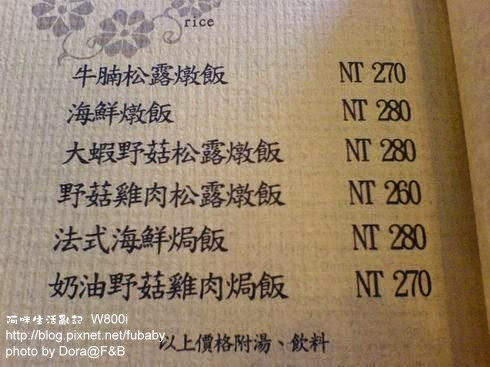 rice
牛腩松露燉飯 NT 270
海鮮燉飯 NT 280
大蝦野菇松露燉飯 NT 280
野菇雞肉松露燉飯 NT 260
法式海鮮焗飯 NT 280
奶油野菇雞肉焗飯 NT 270
以上價格附湯、飲料
阿咪生活亂記 W800i
http://blog.pixnet.net/fubaby
photo by Dora@F&B